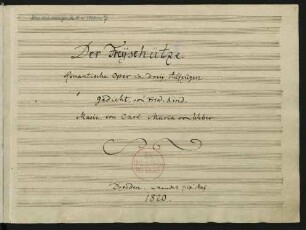 Der Freyschütze.
Romantische Oper in drei Aufzügen
Gedicht von Fried. Kind.
Musik von Carl Maria von Weber
Dresden
1820.